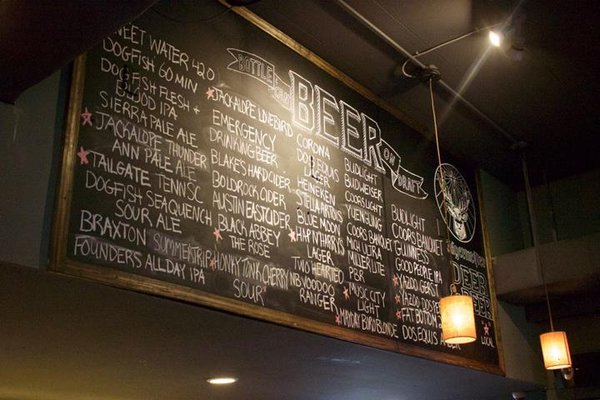 BOTTLE
BEER
ON
DRAFT
SWEET WATER 420
DOGFISH 60 MIN
DOGFISH FLESH +
BLOOD IPA
SIERRA PALE ALE
JACKALOPE THUNDER
ANN PALE ALE
TAILGATE TENNSC
DOGFISH SEAQUENCH
SOUR ALE
BRAXTON SUMMERTRIP
FOUNDERS ALL DAY IPA
JACKALOPE LOVEBIRD
EMERGENCY
DRINKING BEER
BLAKE'S HARD CIDER
BOLDROCK CIDER
AUSTIN EASTCIDER
BLACK ABBEY
THE ROSE
HONKY TONK CHERRY
SOUR
CORONA
DOS EQUIS
LAGER
HEINEKEN
STELLA ARTOIS
BLUE MOON
HAP N HARRYS
LAGER
TWO HEARTED
NB VOODOO
RANGER
BUDLIGHT
BUDWEISER
COORSLIGHT
YUENGLING
COORS BANQUET
MICH ULTRA
MILLER LITE
PBR
MUSIC CITY
LIGHT
MAYDAY BORO BLONDE
BUD LIGHT
COORS BANQUET
GUINNESS
GOOD PEOPLE IPA
YAZOO GERST
YAZOO DOS PERROS
FAT BOTTOM
DOS EQUIS AMBER
DEER
BEER
LOCAL